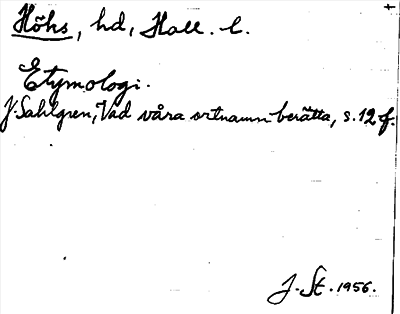 Höks, hd, Hall. l.
Etymologi.
J. Sahlgren, Vad våra ortnamn berätta, s. 12 f.
J. St. 1956.